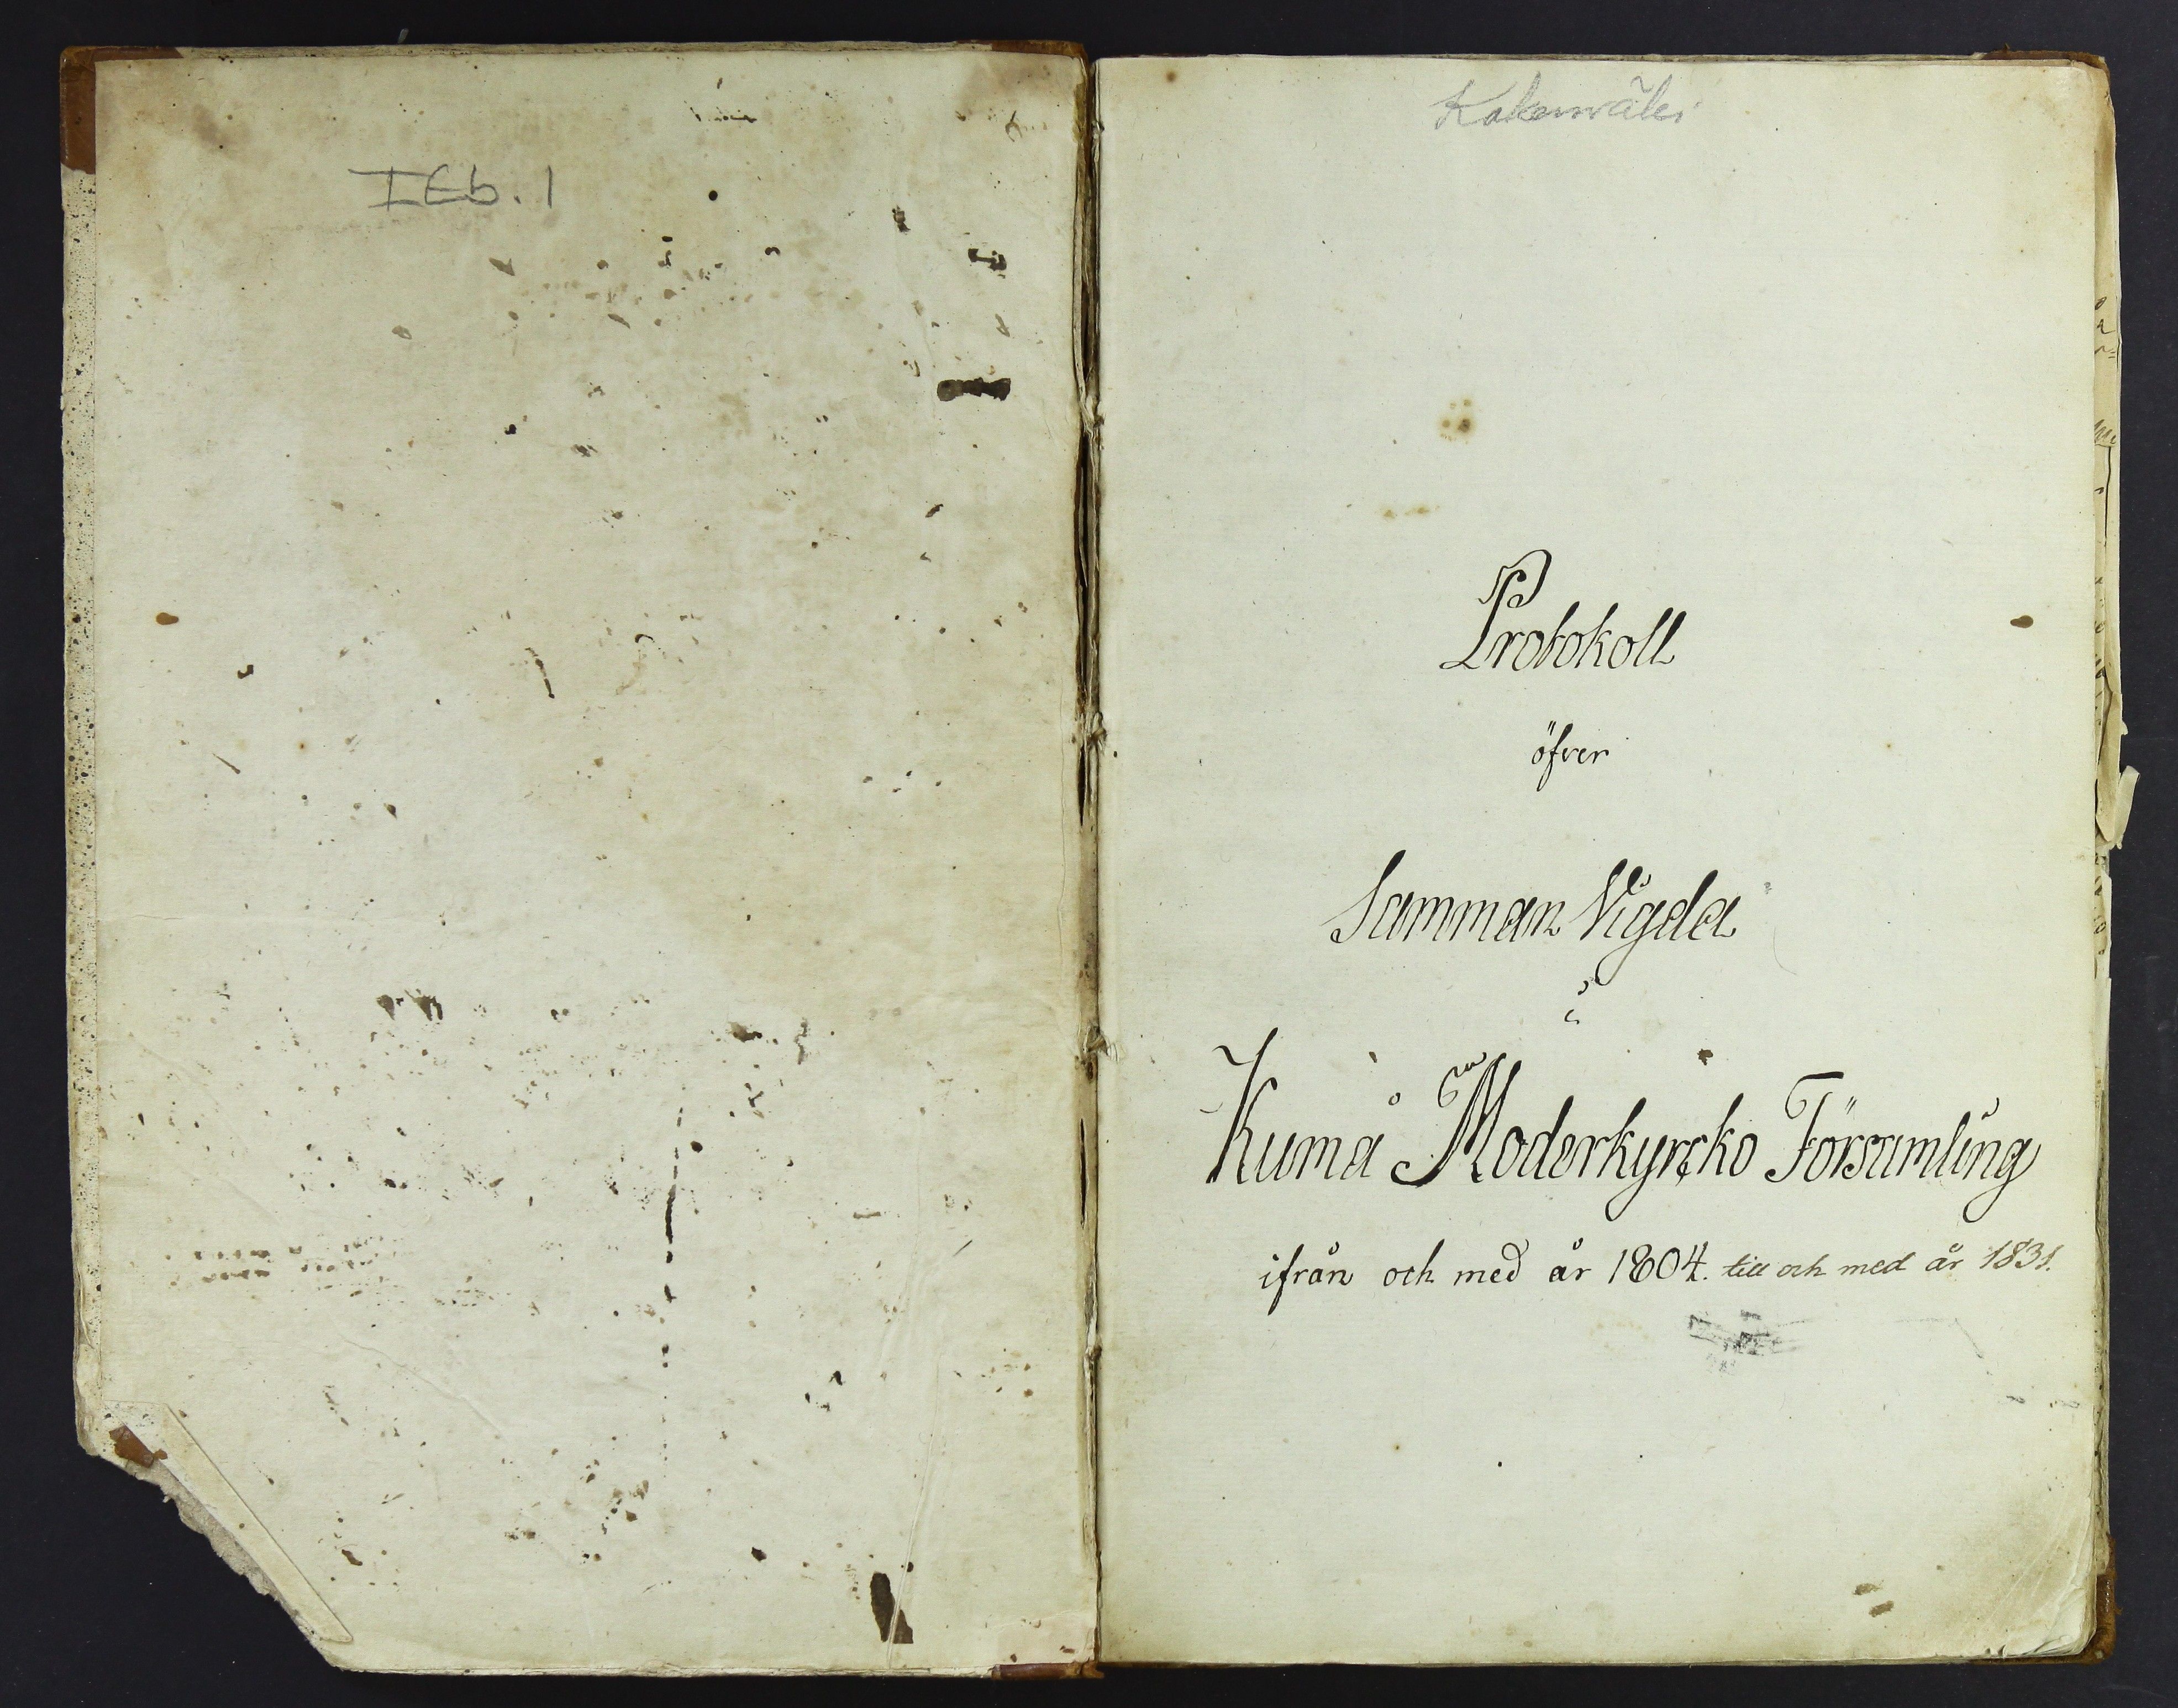 IEb. 1
Protokoll
öfver
Samman Vigda
i
Kumå Moderkyrcko Församling
ifrån och med år 1804. till och med år 1831.